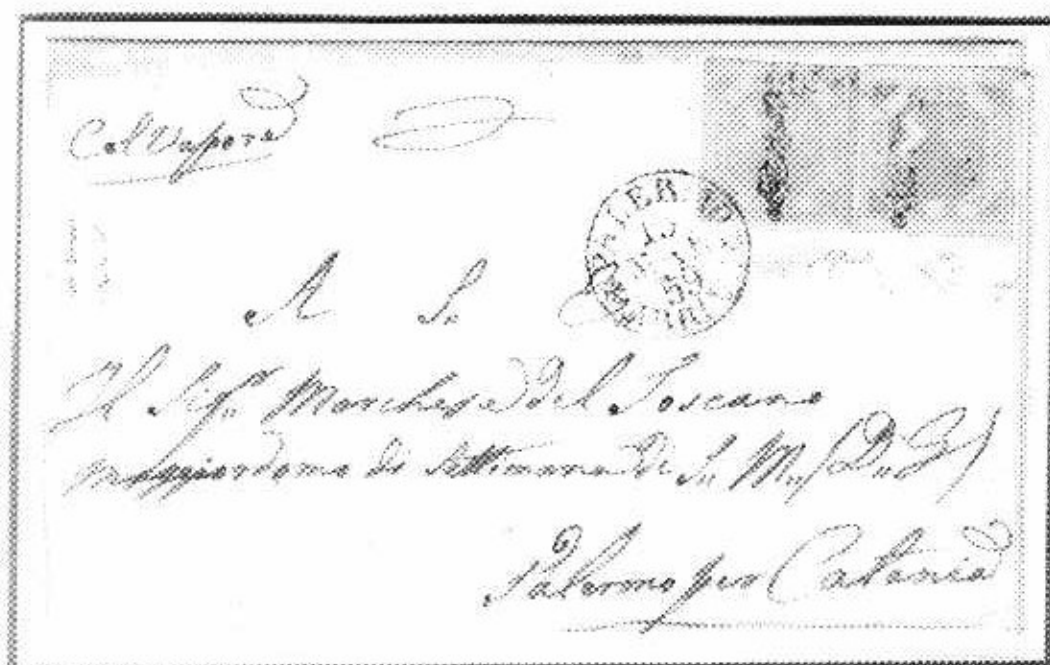 Col Vapore
PALERMO
A S. E.
Il Sig.r Marchese del Toscano
Maggiordomo di Settimana di S. M. (D. G.)
Palermo per Catania